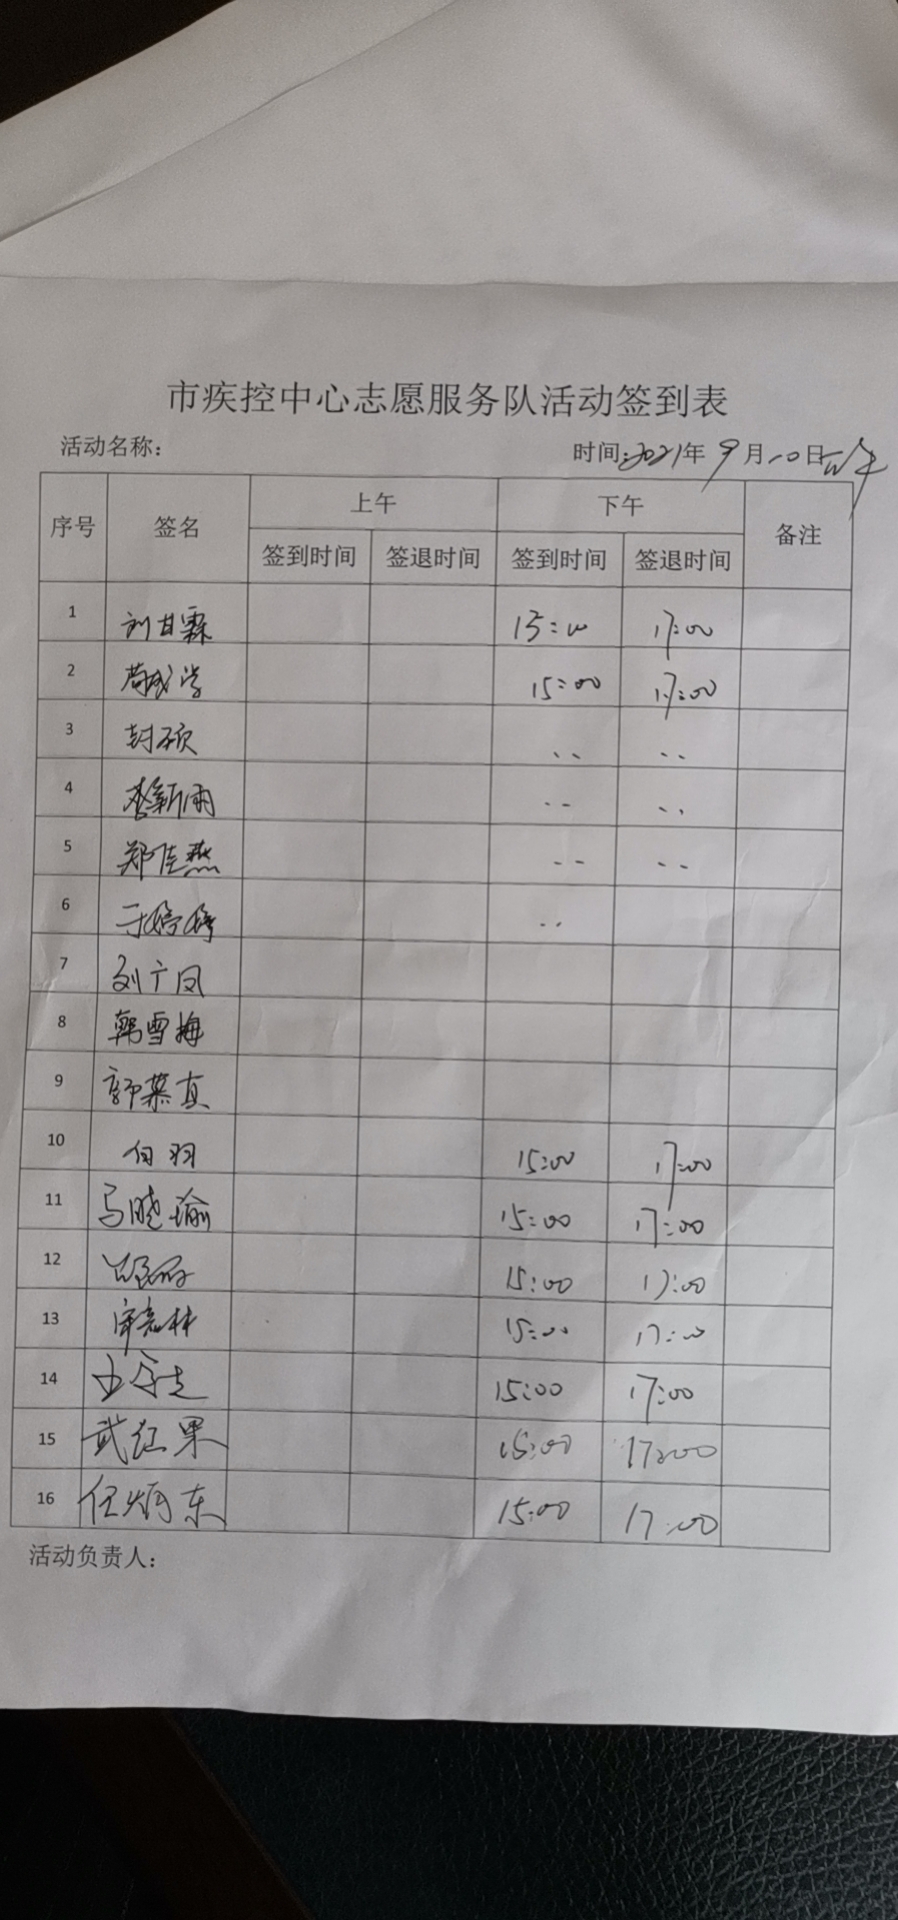 市疾控中心志愿服务队活动签到表
活动名称： 时间：2021年9月10日下午
序号 签名 上午 下午 备注
签到时间 签退时间 签到时间 签退时间
1 刘甘霖 15:00 17:00
2 15:00 17:00
3 封硕 .. ..
4 李新雨 -- ..
5 郑佳燕 -- --
6 于婷婷 ..
7 刘广凤
8 韩雪梅
9 郭慕真
10 白羽 15:00 17:00
11 马晓瑜 15:00 17:00
12 15:00 17:00
13 15:00 17:00
14 15:00 17:00
15 武红果 15:00 17:00
16 任炳东 15:00 17:00
活动负责人：